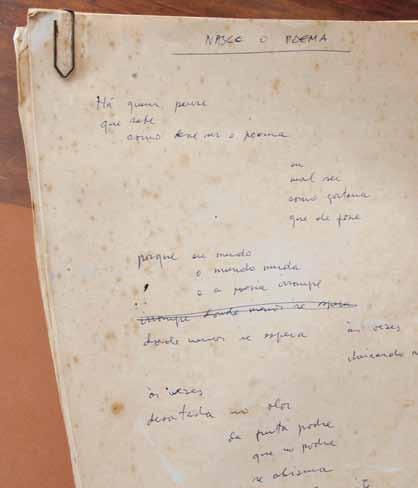 NASCE O POEMA
Há quem pense
que sabe
como deve ser o poema
eu
mal sei
como gostaria
que ele fosse
porque eu mudo
o mundo muda
e a poesia irrompe
irrompe donde menos se espera
donde menos se espera
às vezes
às vezes
desatada no olor
da fruta podre
que no podre
se abisma